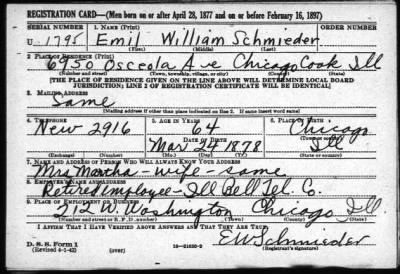 REGISTRATION CARD—(Men born on or after April 28, 1877 and on or before February 16, 1897)
SERIAL NUMBER 1. NAME (Print) ORDER NUMBER
U 1795 Emil William Schmieder
(First) (Middle) (Last)
2. PLACE OF RESIDENCE (Print)
6950 Osceola Ave Chicago Cook Ill
(Number and street) (Town, township, village, or city) (County) (State)
[THE PLACE OF RESIDENCE GIVEN ON THE LINE ABOVE WILL DETERMINE LOCAL BOARD
JURISDICTION; LINE 2 OF REGISTRATION CERTIFICATE WILL BE IDENTICAL]
3. MAILING ADDRESS
Same
[Mailing address if other than place indicated on line 2. If same insert word same]
4. TELEPHONE 5. AGE IN YEARS 6. PLACE OF BIRTH
New 2916 64 Chicago
DATE OF BIRTH (Town or county)
Mar 24 1878 Ill
(Exchange) (Number) (Mo.) (Day) (Yr.) (State or country)
7. NAME AND ADDRESS OF PERSON WHO WILL ALWAYS KNOW YOUR ADDRESS
Mrs Martha - wife - same
8. EMPLOYER'S NAME AND ADDRESS
Retired employee - Ill Bell Tel. Co.
9. PLACE OF EMPLOYMENT OR BUSINESS
212 W. Washington Chicago Ill
(Number and street or R. F. D. number) (Town) (County) (State)
I AFFIRM THAT I HAVE VERIFIED ABOVE ANSWERS AND THAT THEY ARE TRUE.
D. S. S. Form 1
(Revised 4-1-42) (over) 16—21630-2
EW Schmieder
(Registrant's signature)